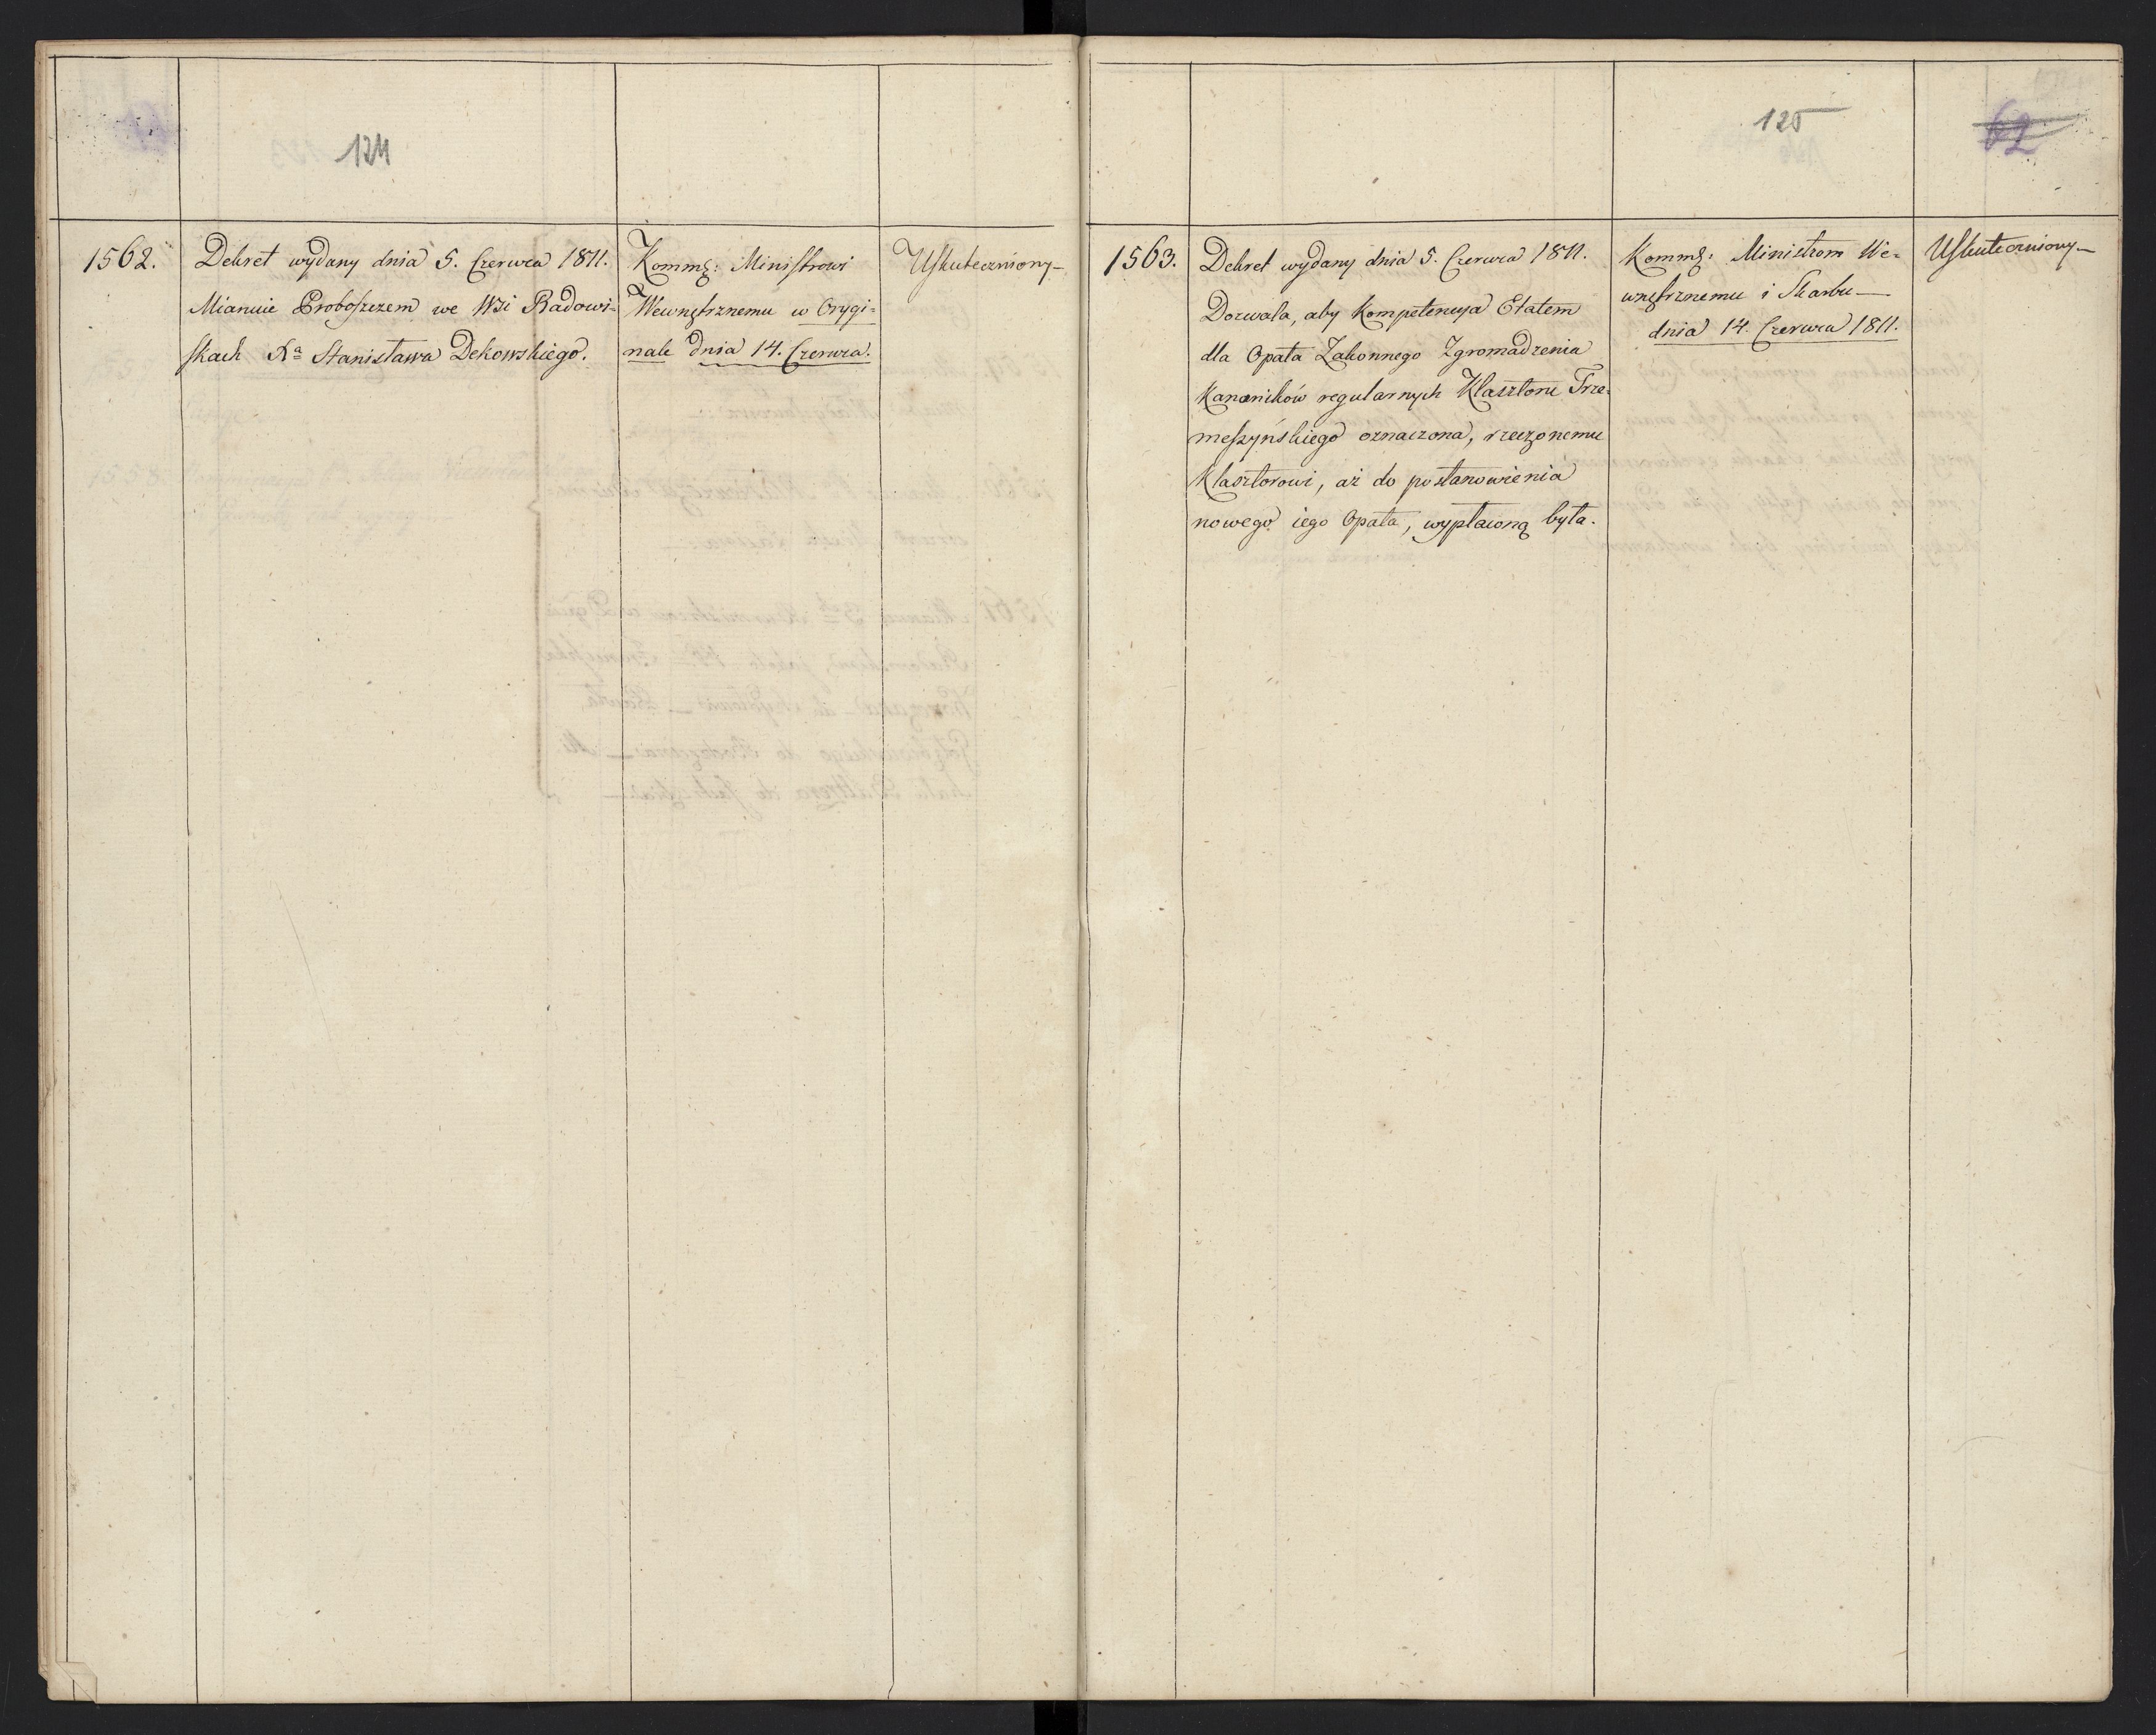 124
1562.
Dekret wydany dnia 5. Czerwca 1811.
Mianuie Proboszczem we Wsi Radowi=
skach Xa Stanisława Dekowskiego.
Kommę: Ministrowi
Wewnętrznemu w Orygi=
nale dnia 14. Czerwca.
Uskuteczniony—
125
62
1563.
Dekret wydany dnia 5. Czerwca 1811.
Dozwala, aby Kompetencya Etatem
dla Opata Zakonnego Zgromadzenia
Kanoników regularnych Klasztoru Trze=
meszyńskiego oznaczona, rzeczonemu
Klasztorowi, aż do postanowienia
nowego iego Opata, wypłaconą była.
Kommę: Ministrom We=
wnętrznemu i Skarbu—
dnia 14. Czerwca 1811.
Uskuteczniony—